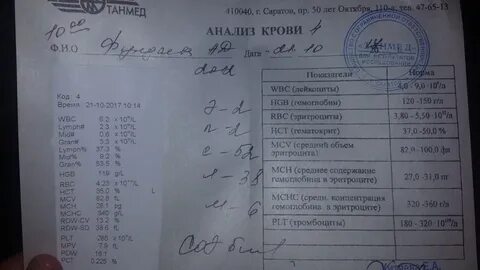 ТАНМЕД
410040, г. Саратов, пр. 50 лет Октября, 110-а, тел. 47-65-13
АНАЛИЗ КРОВИ
10 00
Ф.И.О
Дата 21.10
Код: 4
Время 21-10-2017 10:14
WBC 6.2 x10⁹/L
Lymph# 2.3 x10⁹/L
Mid# 0.6 x10⁹/L
Gran# 3.3 x10⁹/L
Lymph% 37.3 %
Mid% 9.2 %
Gran% 53.5 %
HGB 119 g/L
RBC 4.23 x10¹²/L
HCT 35.0 %
MCV 82.8 fL
MCH 28.1 pg
MCHC 340 g/L
RDW-CV 13.2 %
RDW-SD 38.6 fL
PLT 285 x10⁹/L
MPV 7.9 fL
PDW 16.1
PCT 0.225 %
э-2
п-2
с-52
л-38
м-6
СОЭ 6
Показатели Норма
WBC (лейкоциты) 4,0 - 9,0 ·10⁹/л
HGB (гемоглобин) 120 -150 г/л
RBC (эритроциты) 3,80 - 5,50 ·10¹²/л
HCT (гематокрит) 37,0-50,0 %
MCV (средний объем эритроцита) 82,0-100,0 фл
MCH (среднее содержание гемоглобина в эритроците) 27,0-31,0 пг
MCHC (средн. концентрация гемоглобина в эритроците) 320 -360 г/л
PLT (тромбоциты) 180 - 320 ·10⁹/л